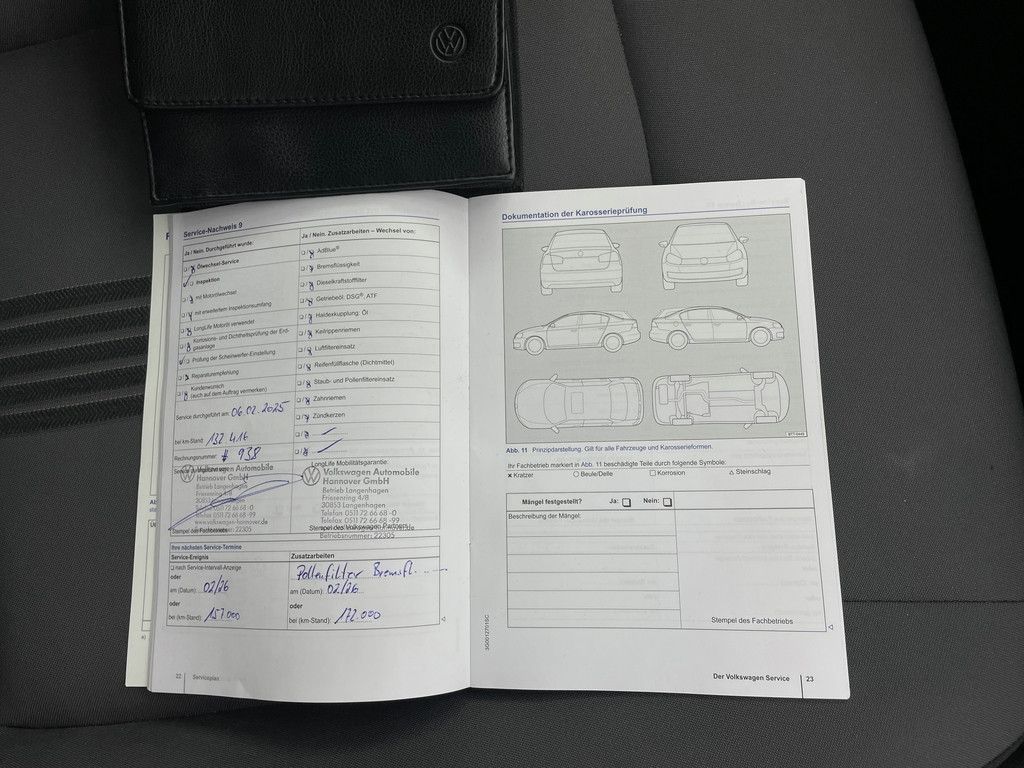 Service-Nachweis 9
Ja / Nein. Durchgeführt wurde:
Ölwechsel-Service
Inspektion
mit Motorölwechsel
mit erweitertem Inspektionsumfang
LongLife Motoröl verwendet
Korrosions- und Dichtheitsprüfung der Erd-
gasanlage
Prüfung der Scheinwerfer-Einstellung
Reparaturempfehlung
Kundenwunsch
(auch auf dem Auftrag vermerken)
Service durchgeführt am: 06.02.2025
bei km-Stand: 132 416
Rechnungsnummer: # 938
Ja / Nein. Zusatzarbeiten – Wechsel von:
AdBlue®
Bremsflüssigkeit
Dieselkraftstofffilter
Getriebeöl: DSG®, ATF
Haldexkupplung: Öl
Keilrippenriemen
Luftfiltereinsatz
Reifenfüllflasche (Dichtmittel)
Staub- und Pollenfiltereinsatz
Zahnriemen
Zündkerzen
Volkswagen Automobile
Hannover GmbH
Betrieb Langenhagen
Friesenring 4/8
30853 Langenhagen
Telefon 0511 72 66 68 -0
Telefax 0511 72 66 68 -99
www.volkswagen-hannover.de
Betriebsnummer: 22305
Stempel des Fachbetriebs
LongLife Mobilitätsgarantie:
Volkswagen Automobile
Hannover GmbH
Betrieb Langenhagen
Friesenring 4/8
30851 Langenhagen
Telefon 0511 72 66 68 -0
Telefax 0511 72 66 68 -99
Stempel des Volkswagen Partners
Betriebsnummer: 22305
Ihre nächsten Service-Termine
Service-Ereignis
nach Service-Intervall-Anzeige
oder
am (Datum): 02/26
oder
bei (km-Stand): 157.000
Zusatzarbeiten
Pollenfilter Bremsfl.
am (Datum): 02/26
oder
bei (km-Stand): 172.000
22 Serviceplan
Dokumentation der Karosserieprüfung
Abb. 11 Prinzipdarstellung. Gilt für alle Fahrzeuge und Karosserieformen.
Ihr Fachbetrieb markiert in Abb. 11 beschädigte Teile durch folgende Symbole:
× Kratzer ○ Beule/Delle □ Korrosion △ Steinschlag
Mängel festgestellt? Ja: □ Nein: □
Beschreibung der Mängel:
Stempel des Fachbetriebs
3G0012701SC
Der Volkswagen Service 23